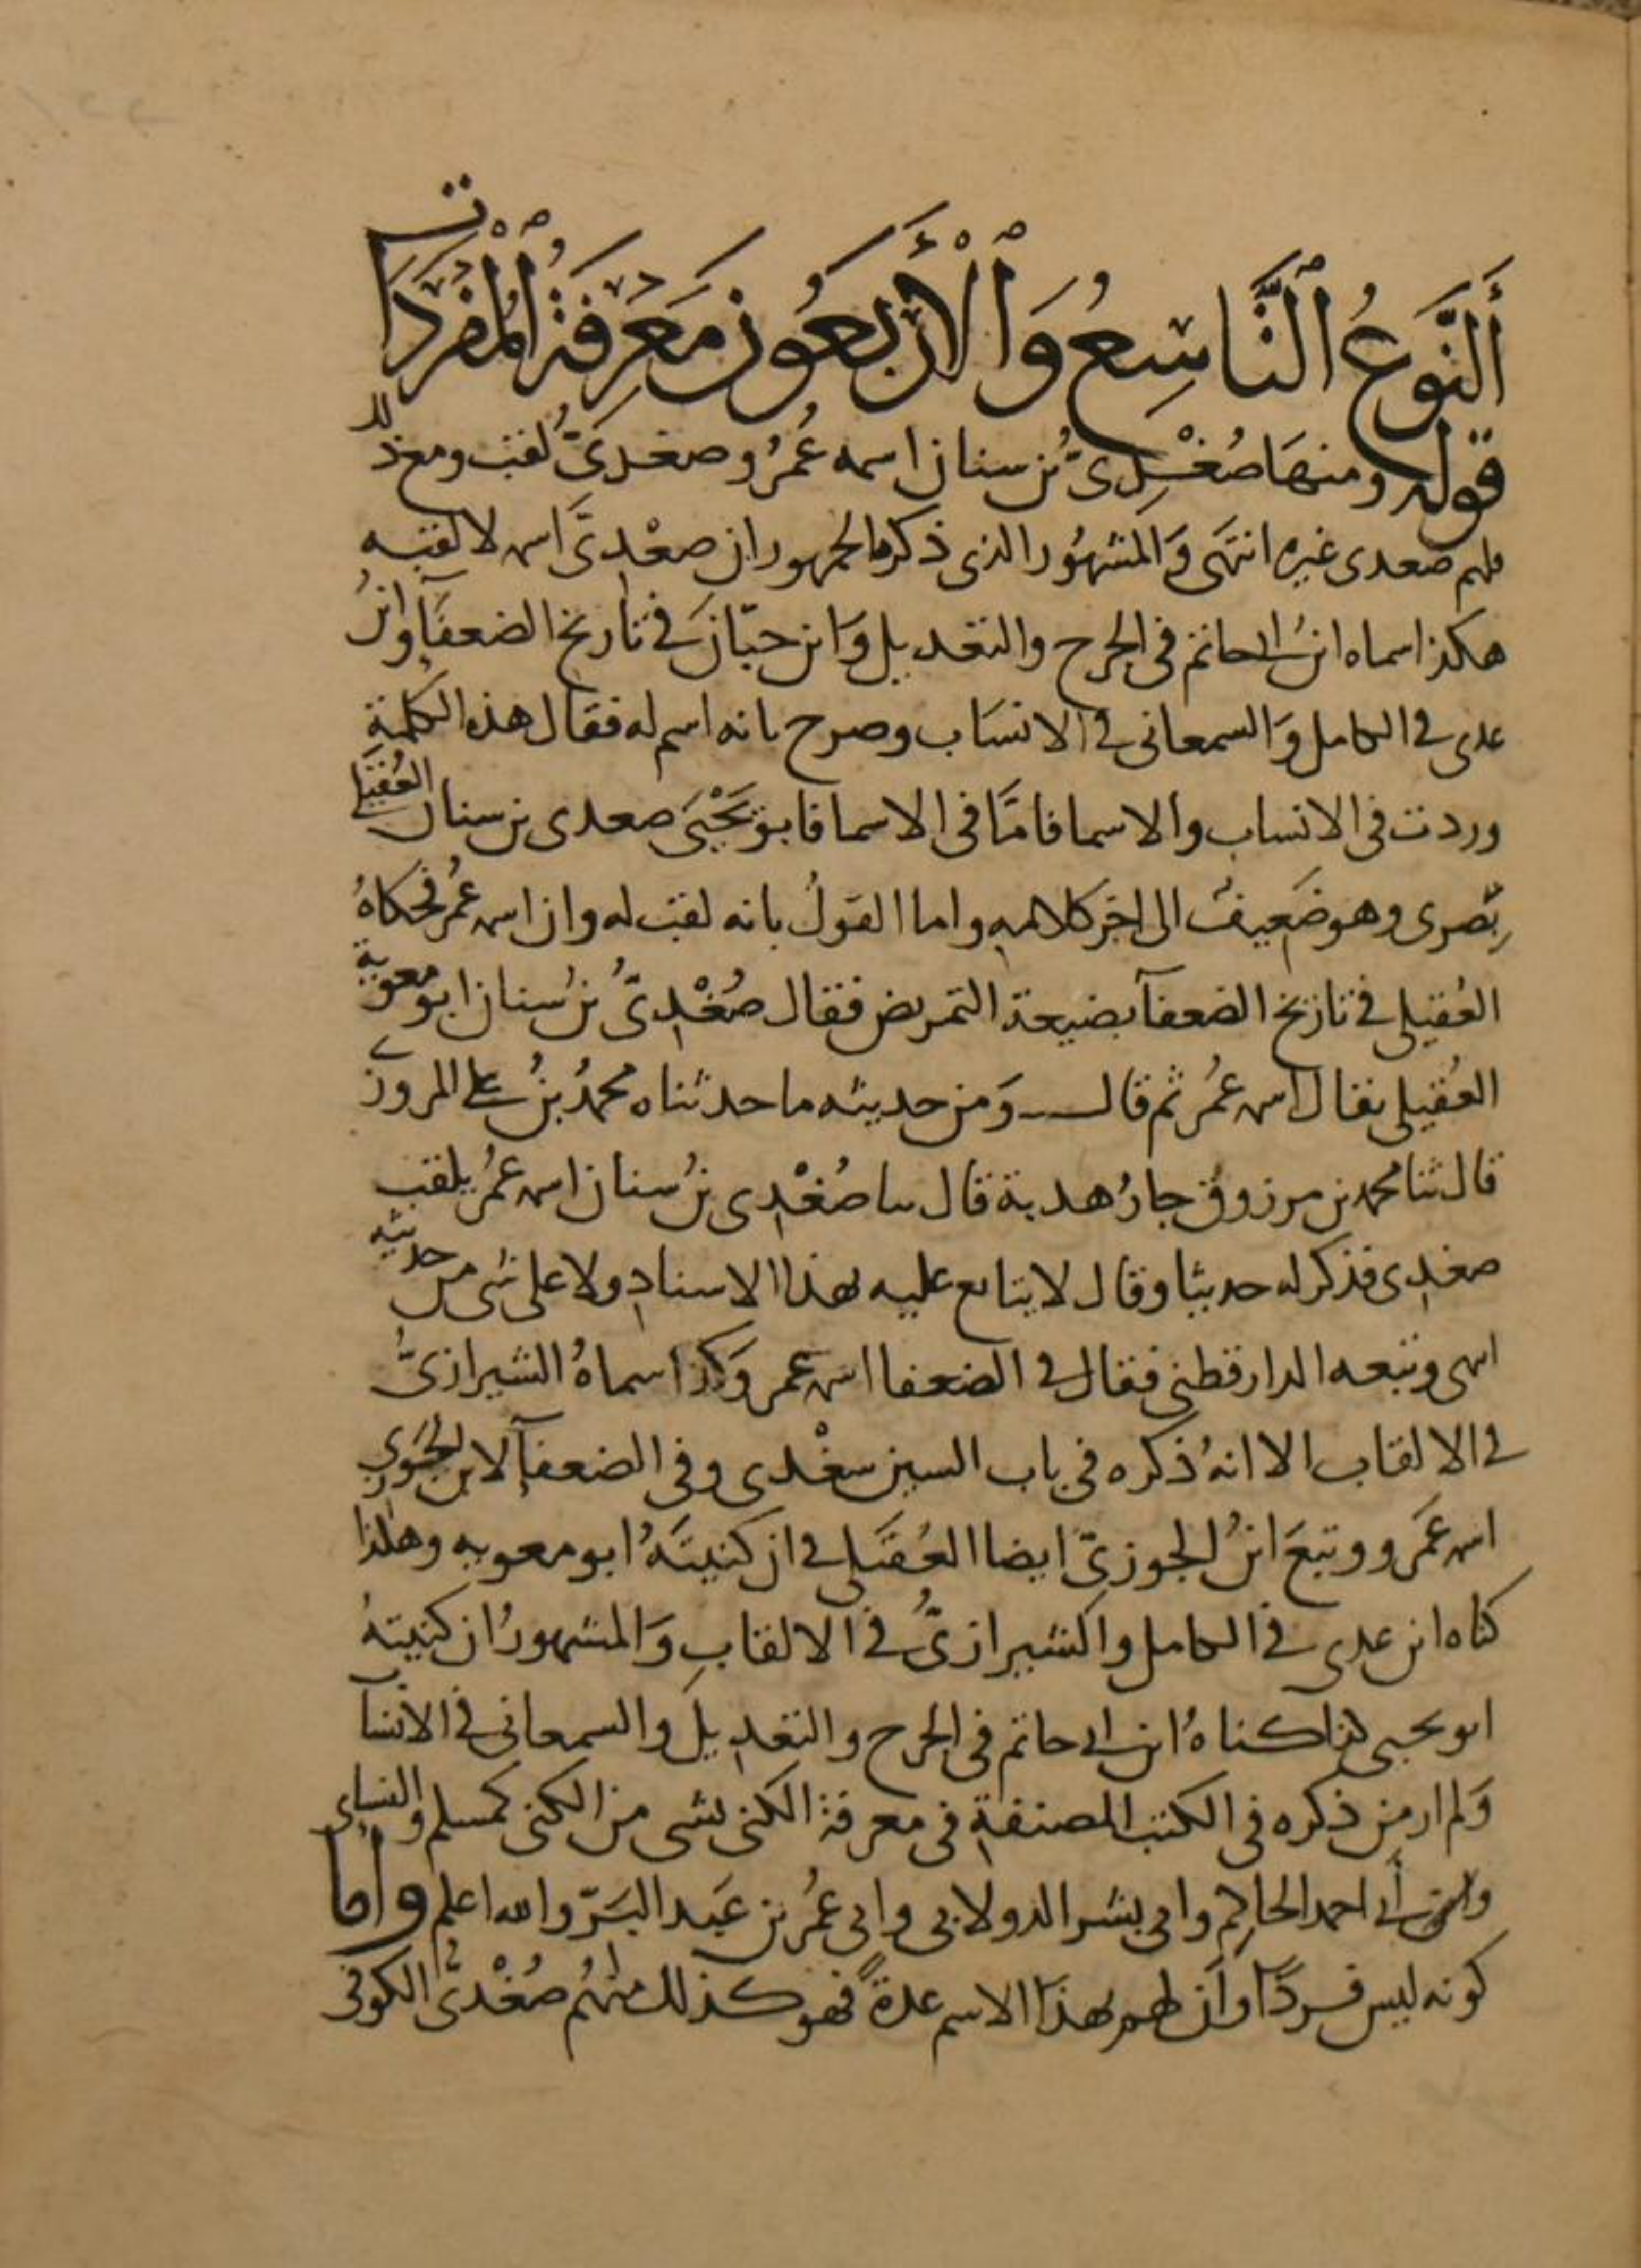 أَلنَّوعُ ٱلتَّاسِعُ وَٱلْأَرْبَعُونَ مَعْرِفَةُ ٱلْمُفْرَدَات
قوله ومنها صُغْدِىّ بْن سنان اسمه عُمَرُ وصغدىّ لقب ومع ذلك
فلهم صغدى غيره انتهَى وَالمشهُور الذى ذكره الجمهور ان صغْدِىّ اسمه لا لقبه
هكذا سماه ابنُ ابى حاتم فى الجرح والتعديل وَابن حبّان فى تاريخ الضعفآ وابنُ
عدى فى الكامل وَالسمعانى فى الانسَاب وصرح بانه اسم له فقال هذه الكلمة
وردت فى الانساب والاسما فامَّا فى الاسما فابو يَحْيَى صغدى بن سنان العُقَيْلى
بَصرى وهو ضَعيف الى اخر كلامه واما القولُ بانه لقب له وان اسمه عُمَر فحكاهُ
العُقيلى فى تاريخ الضعفآ بصيغة التمريض فقال صُغْدِىُّ بنُ سنان ابو معوية
العُقيلى يقال اسمه عُمَر ثم قال وَمن حديثه ما حدثناه محمدُ بنُ على المروزى
قال ثنا محمد بن مرزوق جارُ هدبة قال سا صُغْدِى بنُ سنان اسمه عُمَر يلقب
صغدى فذكر له حديثا وقال لا يتابع عليه بهذا الاسناد ولا على شى من حديثه
انتهى وتبعه الدارقطنى فقال فى الضعفا اسمه عمر وَكذا سماهُ الشيرازىُّ
فى الالقاب الا انهُ ذكره فى باب السين سغْدى وفى الضعفآ لابن الجَوزى
اسمه عَمَرو وتبعَ ابنُ الجوزىّ ايضا العُقَيلى فى ان كنيتَهُ ابو معويه وهكذا
كناه ابن عدى فى الكامل والشيرازىُّ فى الالقابِ وَالمشهورُ ان كنيتهُ
ابو يحيى كذا كناهُ ابن ابى حاتم فى الجرح والتعديل والسمعانى فى الانساب
وَلم ار من ذكره فى الكتب المصنفة فى معرفة الكنى بشى من الكنى كمسلم والنساى
وابى أحمد الحاكم وابى بشر الدولابى وابى عُمَر بن عَبد البَرّ والله اعلم واما
كونه ليس فردًا وأن لهم بهذا الاسم عدةً فهو كذلك منهُم صُغْدىُّ الكوفى